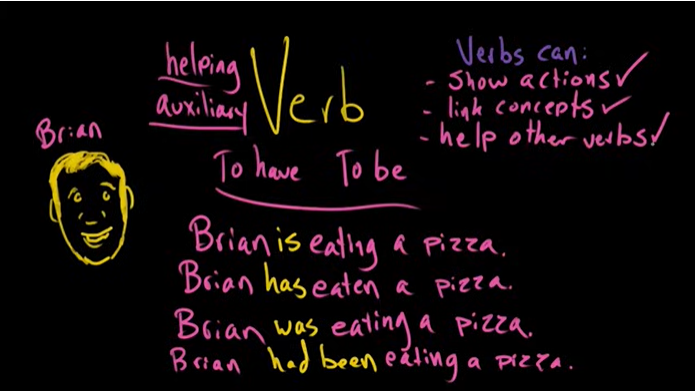 helping
auxiliary
Verb
Verbs can:
- Show actions✓
- link concepts✓
- help other verbs✓
Brian
To have To be
Brian is eating a pizza.
Brian has eaten a pizza.
Brian was eating a pizza.
Brian had been eating a pizza.